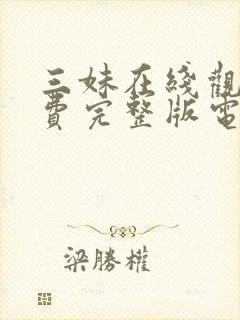 三妹在綫觀
費完整版電
梁勝權